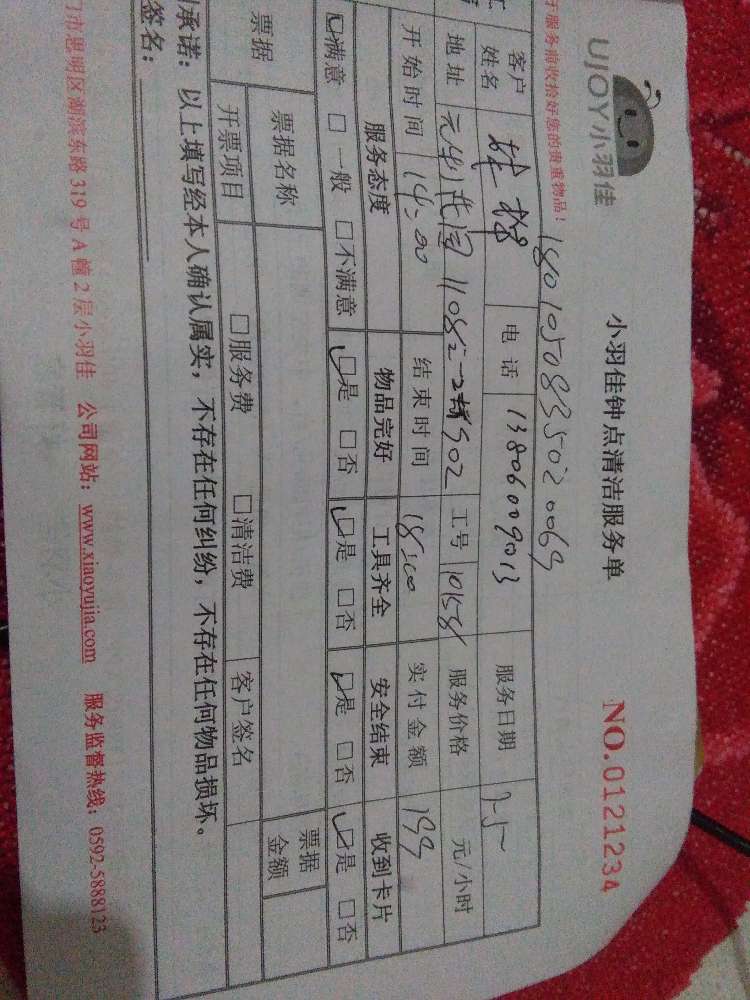 UJOY小羽佳
小羽佳钟点清洁服务单
NO.0121234
于服务前收拾好您的贵重物品!
1801050835020069
客户姓名 电话 13806009013 服务日期 2-5
地址 1108之一2 502 工号 10158 服务价格 元/小时
开始时间 14:00 结束时间 18:00 实付金额 199
服务态度 物品完好 工具齐全 安全结束 收到卡片
☑满意 □一般 □不满意 ☑是 □否 ☑是 □否 ☑是 □否 ☑是 □否
票据 票据名称 票据金额
开票项目 □服务费 □清洁费 客户签名
承诺:以上填写经本人确认属实,不存在任何纠纷,不存在任何物品损坏。
签名:
门市思明区湖滨东路319号A幢2层小羽佳 公司网站:www.xiaoyujia.com 服务监督热线:0592-5888123